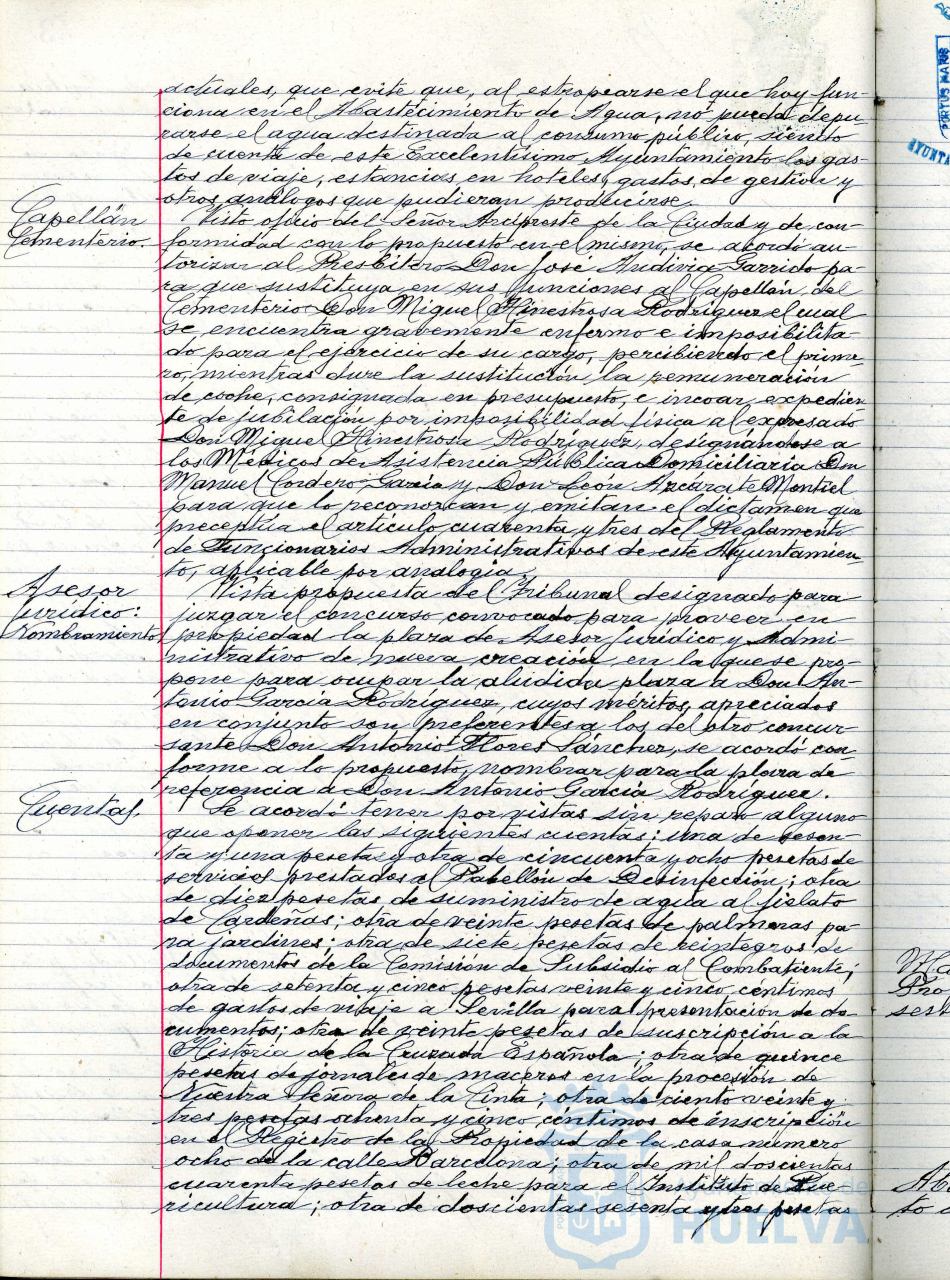 actuales, que evite que, al estropearse el que hoy fun-
ciona en el Abastecimiento de Agua, no pueda depu-
rarse el agua destinada al consumo público, siendo
de cuenta de este Excelentísimo Ayuntamiento los gas-
tos de viaje, estancias en hoteles, gastos de gestión y
otros análogos que pudieran producirse.
Capellán
Cementerio.
Visto oficio del Señor Arcipreste de la Ciudad y de con-
formidad con lo propuesto en el mismo, se acordó au-
torizar al Presbítero Don José Andivia Garrido pa-
ra que sustituya en sus funciones al Capellán del
Cementerio Don Miguel Hinestrosa Rodríguez el cual
se encuentra gravemente enfermo e imposibilita-
do para el ejercicio de su cargo, percibiendo el prime-
ro, mientras dure la sustitución la remuneración
de coche, consignada en presupuesto, e incoar expedien-
te de jubilación por imposibilidad física al expresado
Don Miguel Hinestrosa Rodríguez, designándose a
los Médicos de Asistencia Pública Domiciliaria Don
Manuel Cordero García y Don León Azcárate Montiel
para que lo reconozcan y emitan el dictamen que
preceptúa el artículo cuarenta y tres del Reglamento
de Funcionarios Administrativos de este Ayuntamien-
to, aplicable por analogía.
Asesor
jurídico:
Nombramiento
Vista propuesta del Tribunal designado para
juzgar el concurso convocado para proveer en
propiedad la plaza de Asesor Jurídico y Admi-
nistrativo de nueva creación, en la que se pro-
pone para ocupar la aludida plaza a Don An-
tonio García Rodríguez, cuyos méritos, apreciados
en conjunto son preferentes a los del otro concur-
sante Don Antonio Flores Sánchez, se acordó con-
forme a lo propuesto, nombrar para la plaza de
referencia a Don Antonio García Rodríguez.
Cuentas.
Se acordó tener por vistas sin reparo alguno
que oponer las siguientes cuentas: una de sesen-
ta y una pesetas y otra de cincuenta y ocho pesetas de
servicios prestados al Pabellón de Desinfección; otra
de diez pesetas de suministro de agua al fielato
de Cardeñas; otra de veinte pesetas de palmeras pa-
ra jardines; otra de siete pesetas de reintegros de
documentos de la Comisión de Subsidio al Combatiente;
otra de setenta y cinco pesetas veinte y cinco céntimos
de gastos de viaje a Sevilla para presentación de do-
cumentos; otra de veinte pesetas de suscripción a la
Historia de la Cruzada Española; otra de quince
pesetas de jornales de maceros en la procesión de
Nuestra Señora de la Cinta; otra de ciento veinte y
tres pesetas ochenta y cinco céntimos de inscripción
en el Registro de la Propiedad de la casa número
ocho de la calle Barcelona; otra de mil doscientas
cuarenta pesetas de leche para el Instituto de Pue-
ricultura; otra de doscientas sesenta y tres pesetas
HUELVA